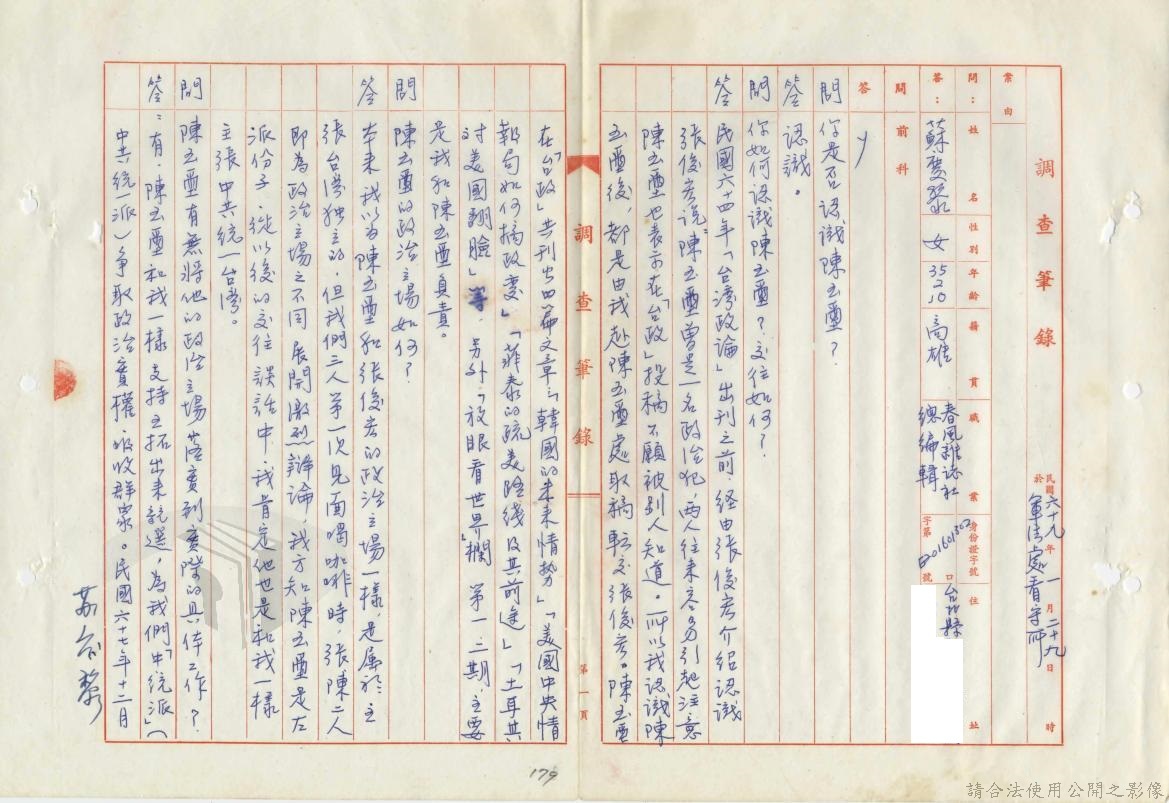 調查筆錄
民國六十九年一月二十九日 時
於軍法處看守所
案由
問:姓名 性別 年齡 籍貫 職業 身份證字號 住址
答:蘇慶黎 女 35 2 10 高雄 春風雜誌社總編輯 字第 號 台北縣
問 前科
答
問 你是否認識陳玉璽?
答 認識。
問 你如何認識陳玉璽?交往如何?
答 民國六十四年「台灣政論」出刊之前,經由張俊宏介紹認識
張俊宏說:陳玉璽曾是一名政治犯,兩人往來容易引起注意
陳玉璽也表示在「台政」投稿不願被別人知道。所以我認識陳
玉璽後,都是由我赴陳玉璽處取稿轉交張俊宏。陳玉璽
第一頁
調查筆錄
在「台政」共刊出四篇文章:「韓國的未來情勢」「美國中央情
報局如何搞政變」「菲泰的疏美路线及其前途」「土耳其
对美國翻臉」等,另外「放眼看世界欄」第一、二期,主要
是我和陳玉璽負責。
問 陳玉璽的政治立場如何?
答 本來我以為陳玉璽和張俊宏的政治立場一樣,是属於主
張台湾独立的,但我們三人第一次見面喝咖啡時,張陳二人
即為政治立場之不同展開激烈辯論,我方知陳玉璽是左
派份子,從以後的交往談話中,我肯定他也是和我一樣
主張中共統一台湾。
問 陳玉璽有無將他的政治立場落實到實際的具体工作?
答:有,陳玉璽和我一樣支持王拓出來競選,為我們「中統派」(
中共統一派)争取政治實權,吸收群众。民國六十七年十二月
蘇慶黎
179
請合法使用公開之影像